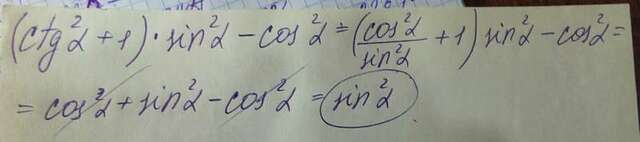 (ctg²α + 1) · sin²α − cos²α = (cos²α/sin²α + 1) sin²α − cos²α =
= cos²α + sin²α − cos²α = sin²α